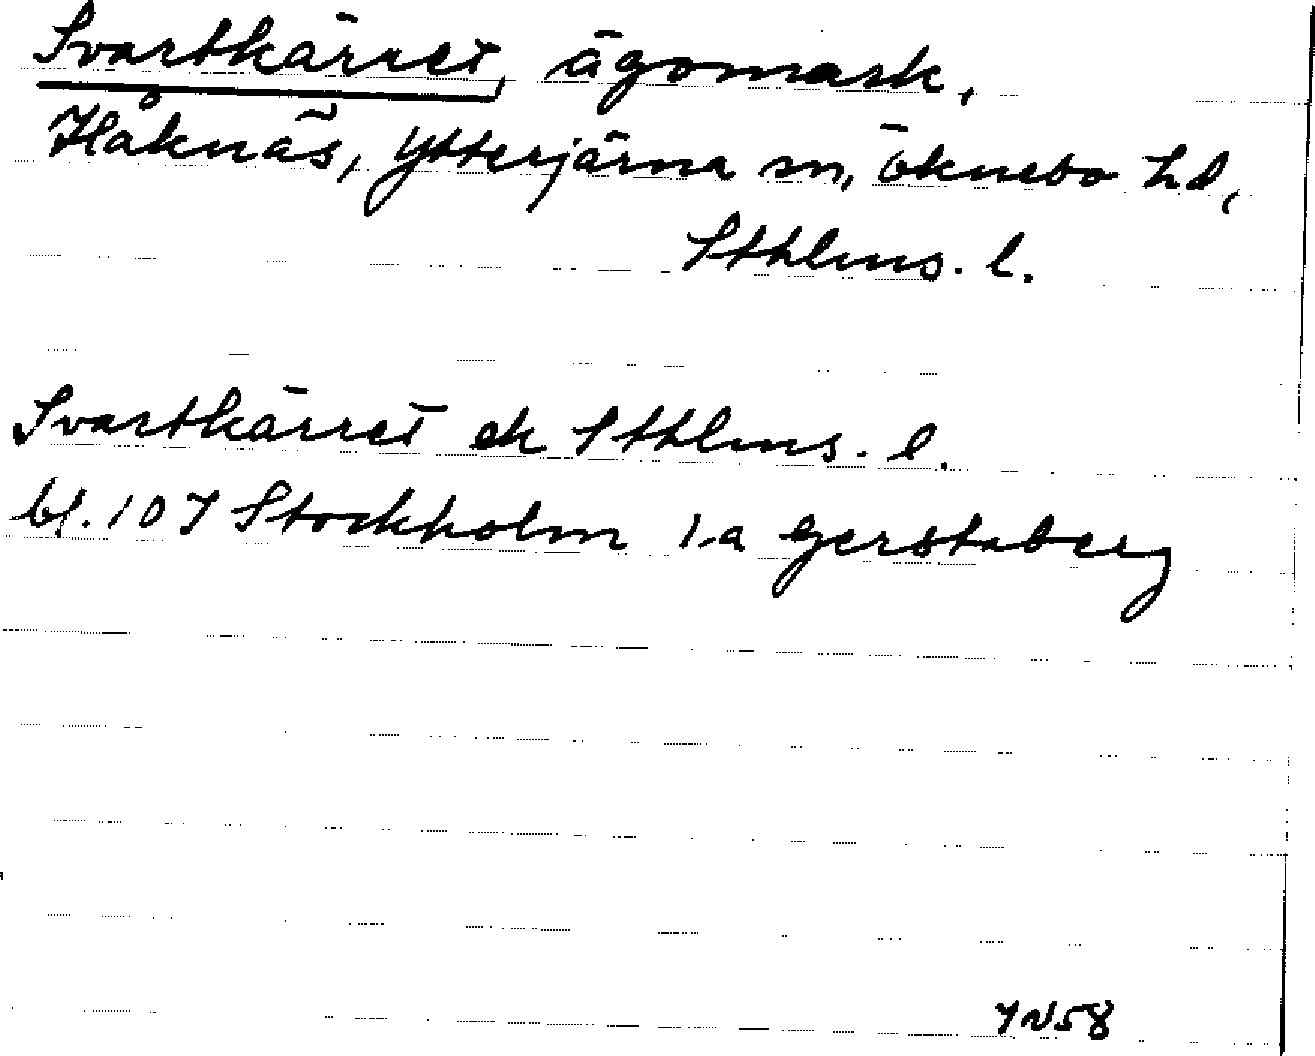 Svartkärret, ägomark,
Håknäs, Ytterjärna sn, Öknebo hd,
Sthlms. l.
Svartkärret ek Sthlms. l.
bl. 107 Stockholm 1.a Gerstaberg
7N58